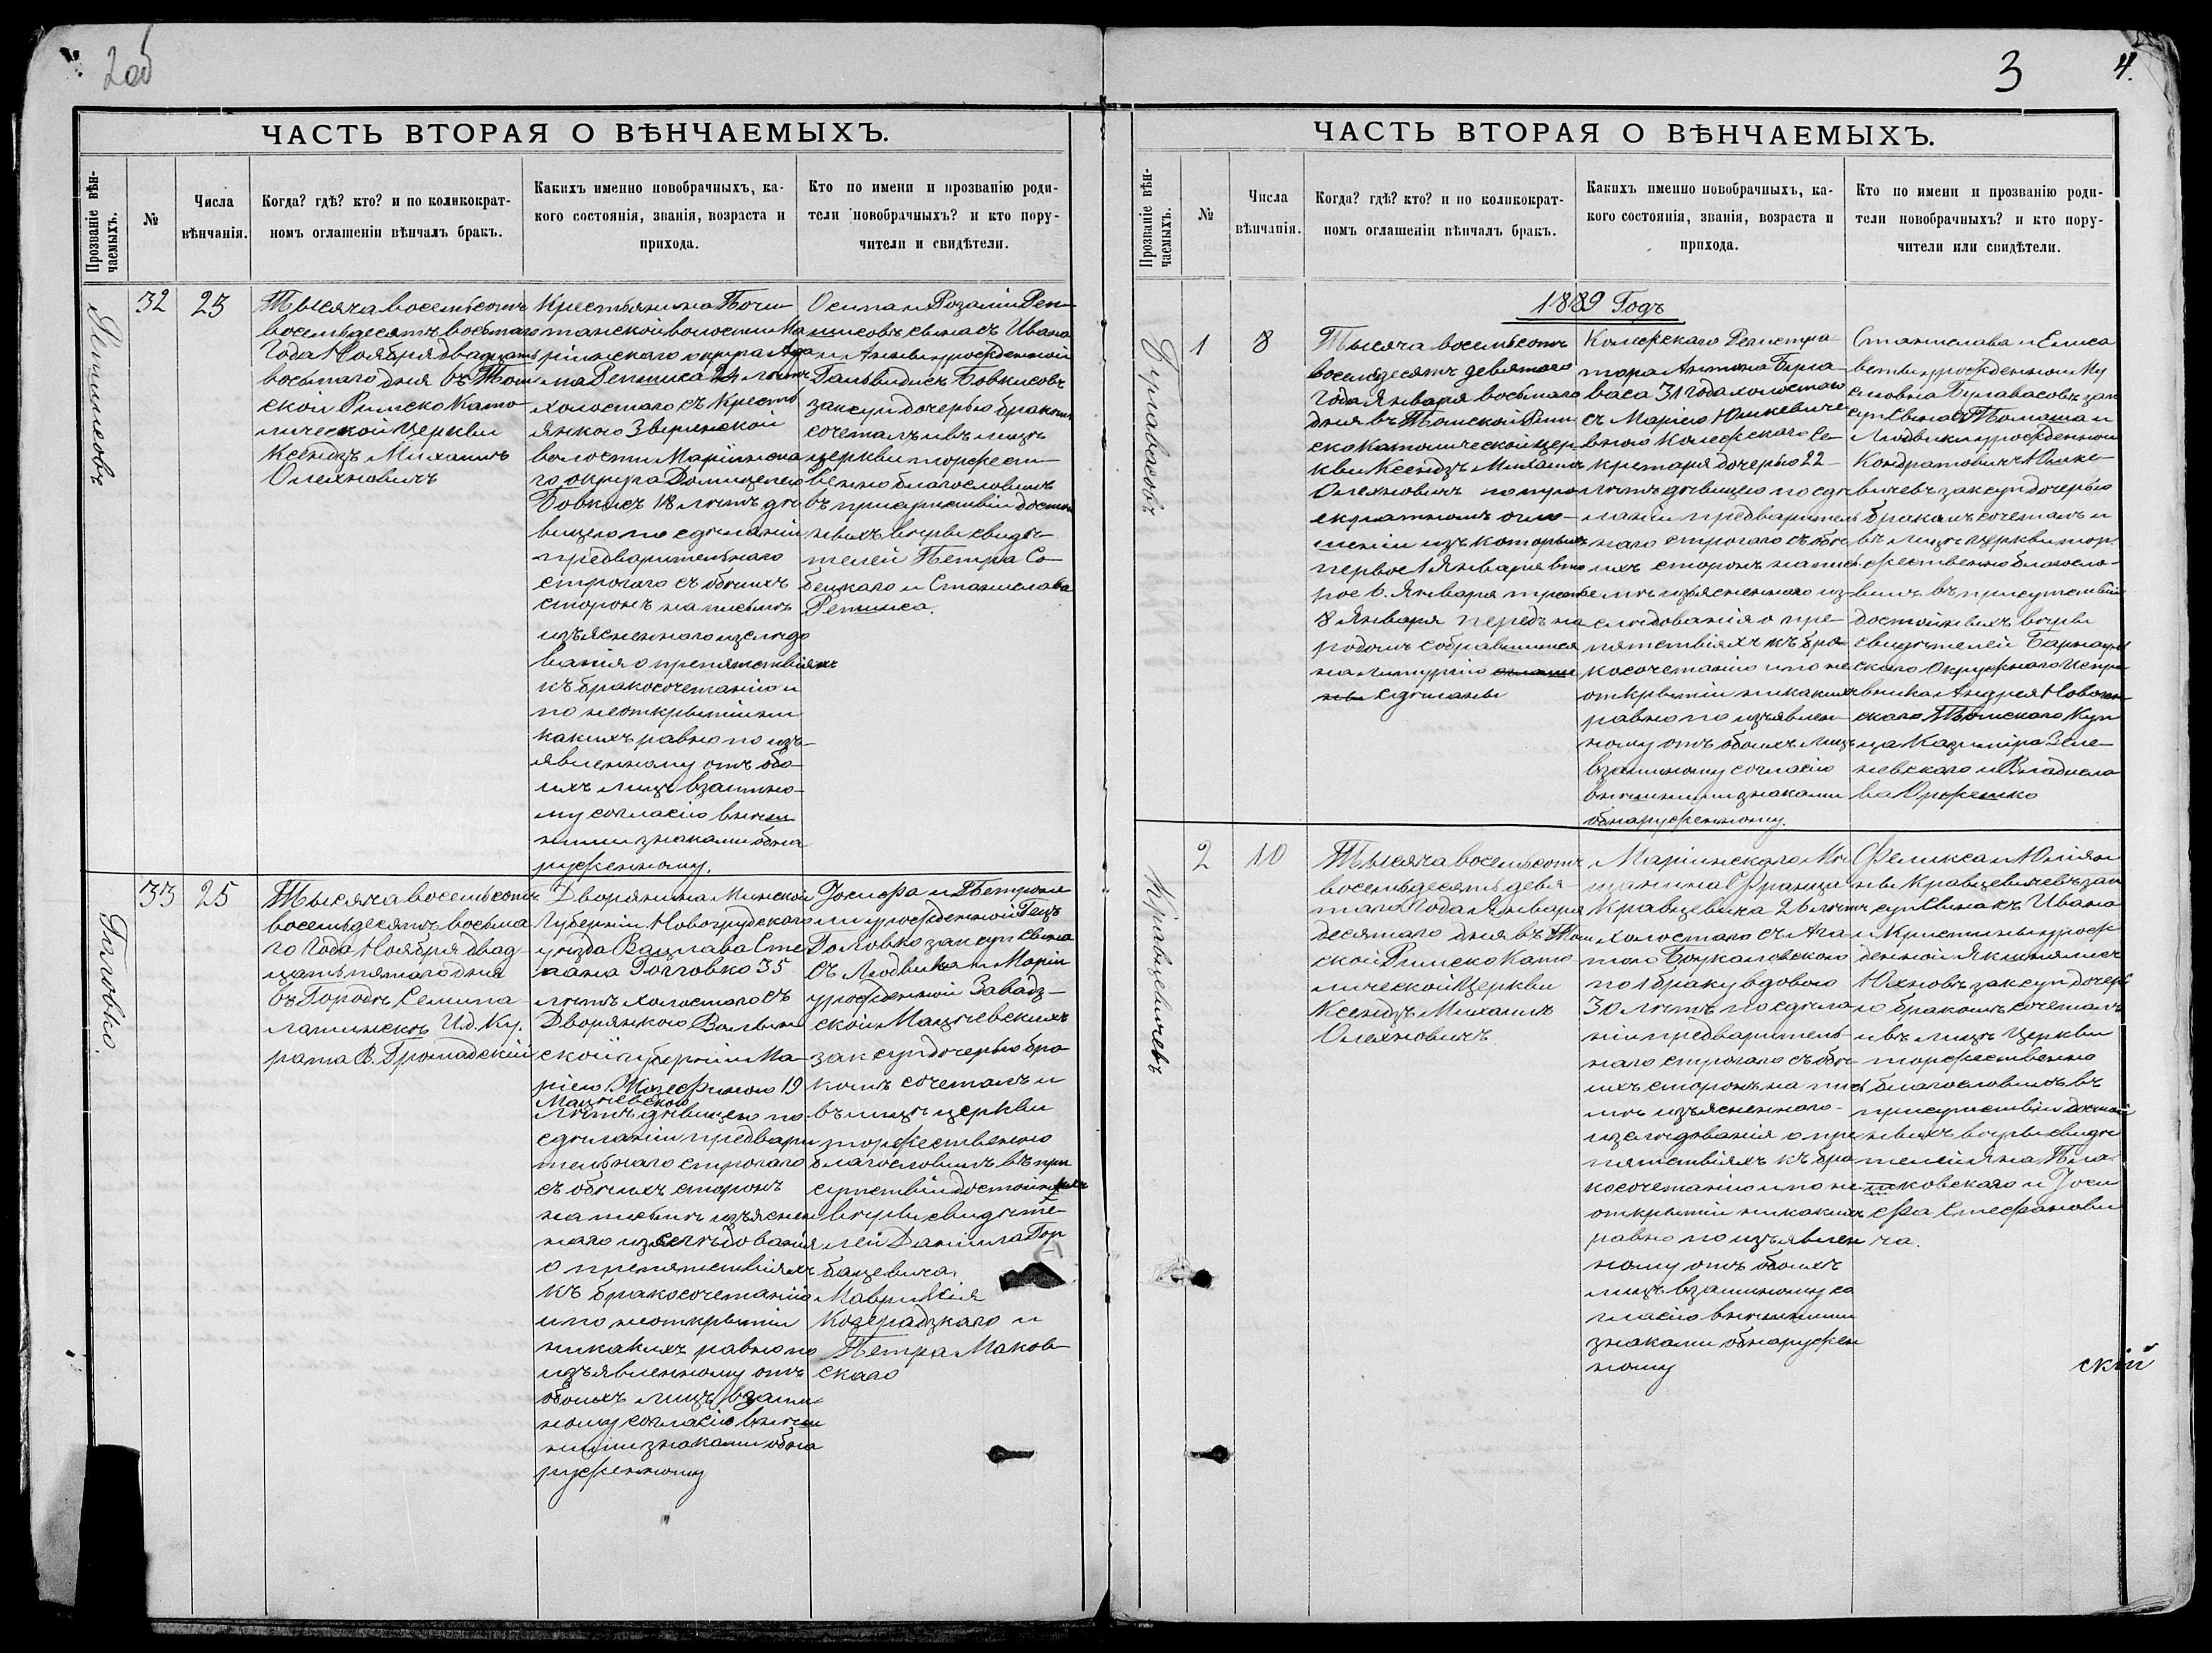 2об
ЧАСТЬ ВТОРАЯ О ВѢНЧАЕМЫХЪ.
Прозваніе вѣн-
чаемыхъ.
№
Числа
вѣнчанія.
Когда? гдѣ? кто? и по коликократ-
номъ оглашеніи вѣнчалъ бракъ.
Какихъ именно новобрачныхъ, ка-
кого состоянія, званія, возраста и
прихода.
Кто по имени и прозванію роди-
тели новобрачныхъ? и кто пору-
чители и свидѣтели.
32
23
Тысяча восемьсотъ
восемьдесятъ восьмаго
Года Ноября двадцать
восьмаго дня въ Том
ской Римско Като
лической Церкви
Ксендзъ Михаилъ
Олехновичъ
Крестьянина Бочи
танской волости Ма
ріинскаго округа Ада
ма Реписа 24 лѣтъ
холостаго съ Кресть
янкою Зверинской
волости Маріинска
го округа Домицелею
Бовкисъ 18 лѣтъ дѣ
вицею по сдѣланіи
предварительнаго
строгаго съ обѣихъ
сторонъ на письмѣ
изъясненнаго изслѣдо
ванія о препятствіяхъ
къ бракосочетанію и
по неоткрытіи ни
какихъ равно по изъ-
явленному отъ обо-
ихъ лицъ взаимно-
му согласію внѣш
ними знаками обна
руженному.
Осипа и Розаліи Реп
писовъ сына съ Ивана
и Анны урожденной
Бовкисовъ
зак суп дочерью бракомъ
сочеталъ и въ лицѣ
церкви торжест-
венно благословилъ
въ присутствіи достой
ныхъ вѣры свидѣ-
телей Петра Со-
бецкаго и Станислава
Реписа.
33
25
Головко.
Тысяча восемьсотъ
восемьдесятъ восьма
го Года Ноября двад-
цать пятаго дня
въ Городѣ Семипа-
латинскѣ И.д. Ку.
рата В. Громадскій
Дворянина Минской
Губерніи Новогрудскаго
уѣзда Вацлава Сте
пана Головко 35
лѣтъ холостаго съ
Дворянкою Волын
ской губерніи Ма-
ріею Жозефиною 19
Мацѣевскою
лѣтъ дѣвицею по
сдѣланіи предвари
тельнаго строгаго
съ обѣихъ сторонъ
на письмѣ изъяснен
наго изслѣдованія
о препятствіяхъ
къ бракосочетанію
и по неоткрытіи
никакихъ равно по
изъявленному отъ
обоихъ лицъ взаим
ному согласію внѣш
ними знаками обна
руженному
Іосифа и Петроне
ли урожденной Гецъ
Головко зак суп сына
съ Людвика и Маріи
урожденной Завадз-
ской Мацѣевскихъ
зак суп дочерью бра
комъ сочеталъ и
въ лицѣ церкви
торжественно
благословилъ въ при
сутствіи достойныхъ
вѣры свидѣте-
лей Даніила Гор
бацевича.
Маврикія
Козерадзкаго и
Петра Маков-
скаго
3
4.
ЧАСТЬ ВТОРАЯ О ВѢНЧАЕМЫХЪ.
Прозваніе вѣн-
чаемыхъ.
№
Числа
вѣнчанія.
Когда? гдѣ? кто? и по коликократ-
номъ оглашеніи вѣнчалъ бракъ.
Какихъ именно новобрачныхъ, ка-
кого состоянія, званія, возраста и
прихода.
Кто по имени и прозванію роди-
тели новобрачныхъ? и кто пору-
чители или свидѣтели.
1889 Годъ
1
8
Тысяча восемьсотъ
восемьдесятъ девятаго
Года Января восьмаго
дня въ Томской Рим
ско Католической цер
кви Ксендзъ Михаилъ
Олехновичъ по трое
екратномъ огла-
шеніи изъ которыхъ
первое 1 Января вто
рое 6. Января третье
8 Января передъ на
родомъ собравшимся
на литургію
сдѣланы
Колежскаго Регистра
тора Антона Була
васа 31 года холостаго
съ Маріею Юшкевиче
вною Колежскаго Се-
кретаря дочерью 22
лѣтъ дѣвицею по сдѣ
ланіи предваритель
наго строгаго съ обѣ
ихъ сторонъ на пись
мѣ изъясненнаго из-
слѣдованія о пре-
пятствіяхъ къ бра
косочетанію и по не
открытіи никакихъ
равно по изъявлен-
ному отъ обоихъ лицъ
взаимному согласію
внѣшними знаками
обнаруженному.
Станислава и Елиса
веты урожденной
Булавасовъ зак
суп сына съ Томаша и
Людвики урожденной
Кондратовичъ Юшке-
вичевъ зак суп дочерью
бракомъ сочеталъ и
въ лицѣ церкви тор
жественно благосло-
вилъ въ присутствіи
достойныхъ вѣры
свидѣтелей Барнауль
скаго Окружнаго Испра
вника Андрея
скаго Томскаго Куп
ца Казиміра Зеле-
невскаго и Владисла
ва Оржешко
2
10
Кравцевичевъ
Тысяча восемьсотъ
восемьдесятъ девя-
таго Года Января
десятаго дня въ Том
ской Римско Като
лической Церкви
Ксендзъ Михаилъ
Олехновичъ
Маріинскаго Мѣ
щанина Франца
Кравцевича 26 лѣтъ
холостаго съ Ага
тою
по 1 браку вдовою
30 лѣтъ по сдѣла
ніи предваритель-
наго строгаго съ обѣ-
ихъ сторонъ на пись
мѣ изъясненнаго
изслѣдованія о пре
пятствіяхъ къ бра
косочетанію и по не
открытіи никакихъ
равно по изъявлен
ному отъ обоихъ
лицъ взаимному со
гласію внѣшними
знаками обнаружен
ному
Феликса и Юліян
ны Кравцевичевъ зак
суп сына съ Ивана
и Кристины урож
денной
Юхновъ зак суп дочерь
ю бракомъ сочеталъ
и въ лицѣ Церкви
торжественно
благословилъ въ
присутствіи достой
ныхъ вѣры свидѣ
телей Яна Пла
шковскаго и Іоси
фа Стефанови
ча.
скій